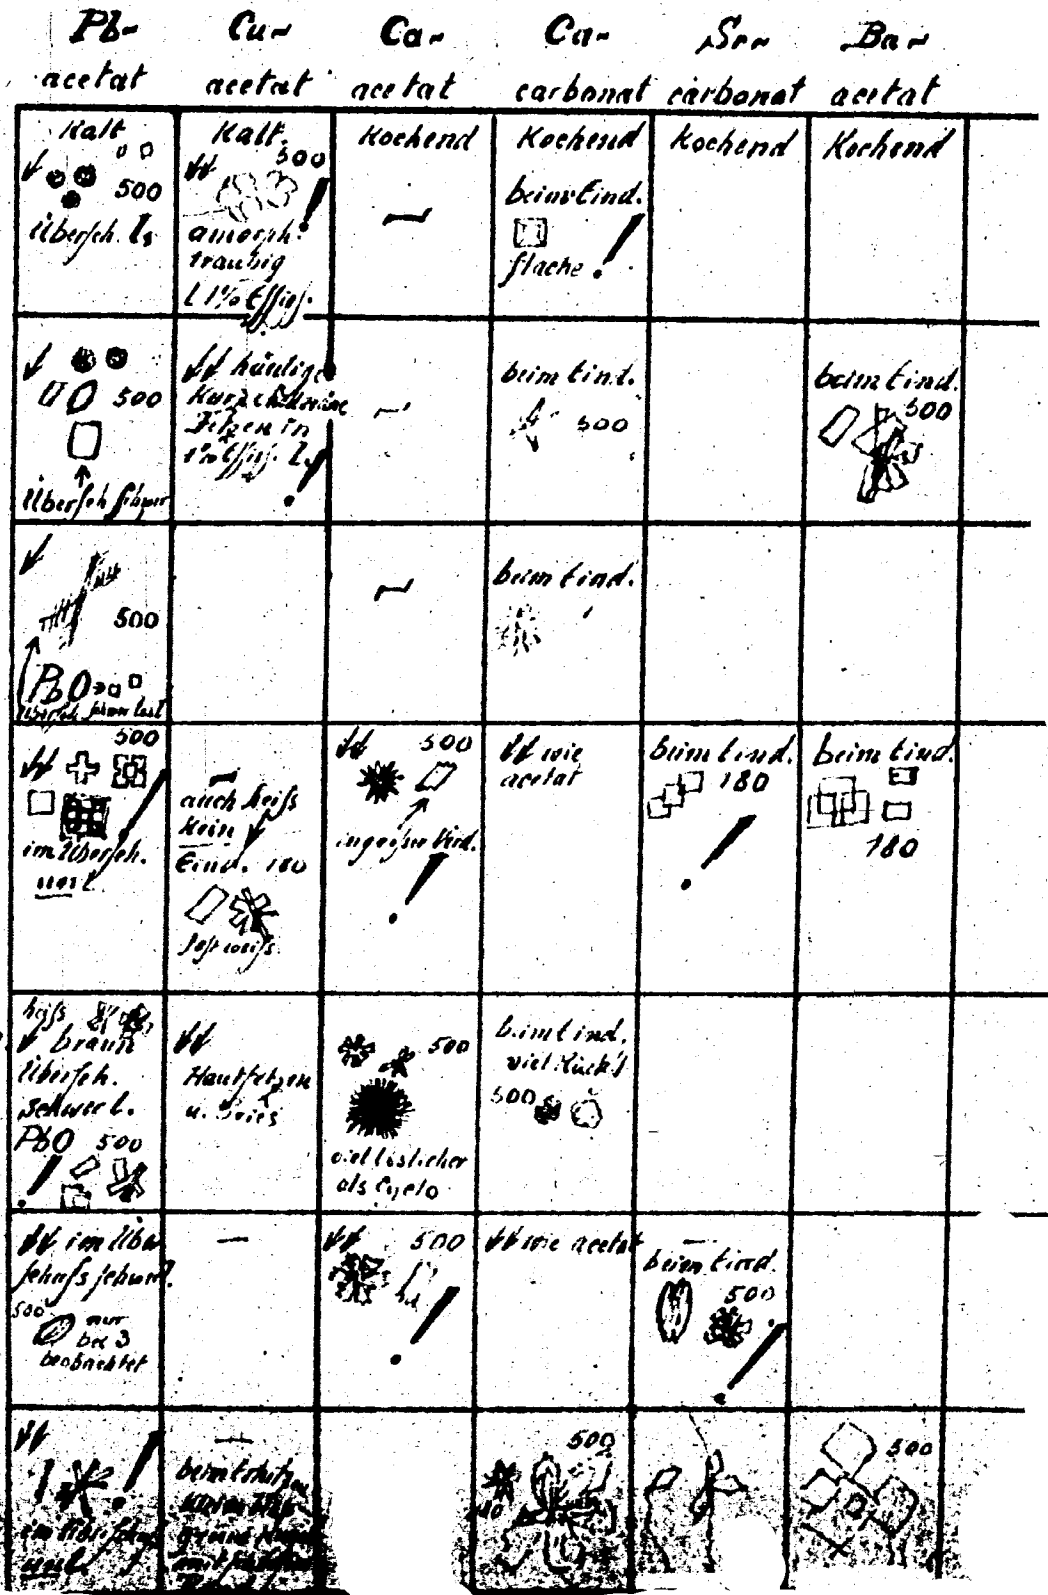 Pb- Cu- Ca- Ca- Sr- Ba-
acetat acetat acetat carbonat carbonat acetat
Kalt
500
Übersch. l.
Kalt.
500
amorph.
traubig
l 1% Essigs.
Kochend
Kochend
beim Eind.
flache
Kochend
Kochend
500
Übersch schwer
häutige
Fetzen in
1% Essigs. l.
beim Eind.
500
beim Eind.
500
500
PbO
Übersch. schwer lösl
beim Eind.
500
im Übersch.
unl.
auch heiss
kein
Eind. 180
500
wie
acetat
beim Eind.
180
beim Eind.
180
heiss
braun
Übersch.
schwer l.
PbO 500
Hautfetzen
u. Gries
500
viel löslicher
als Cyclo
beim Eind.
viel Rückst
500
im Über
schuss schwerl.
500
nur
bei 3
beobachtet
500
wie acetat
beim Eind.
500
im Überschuss
unl.
beim Erhitzen
500
500